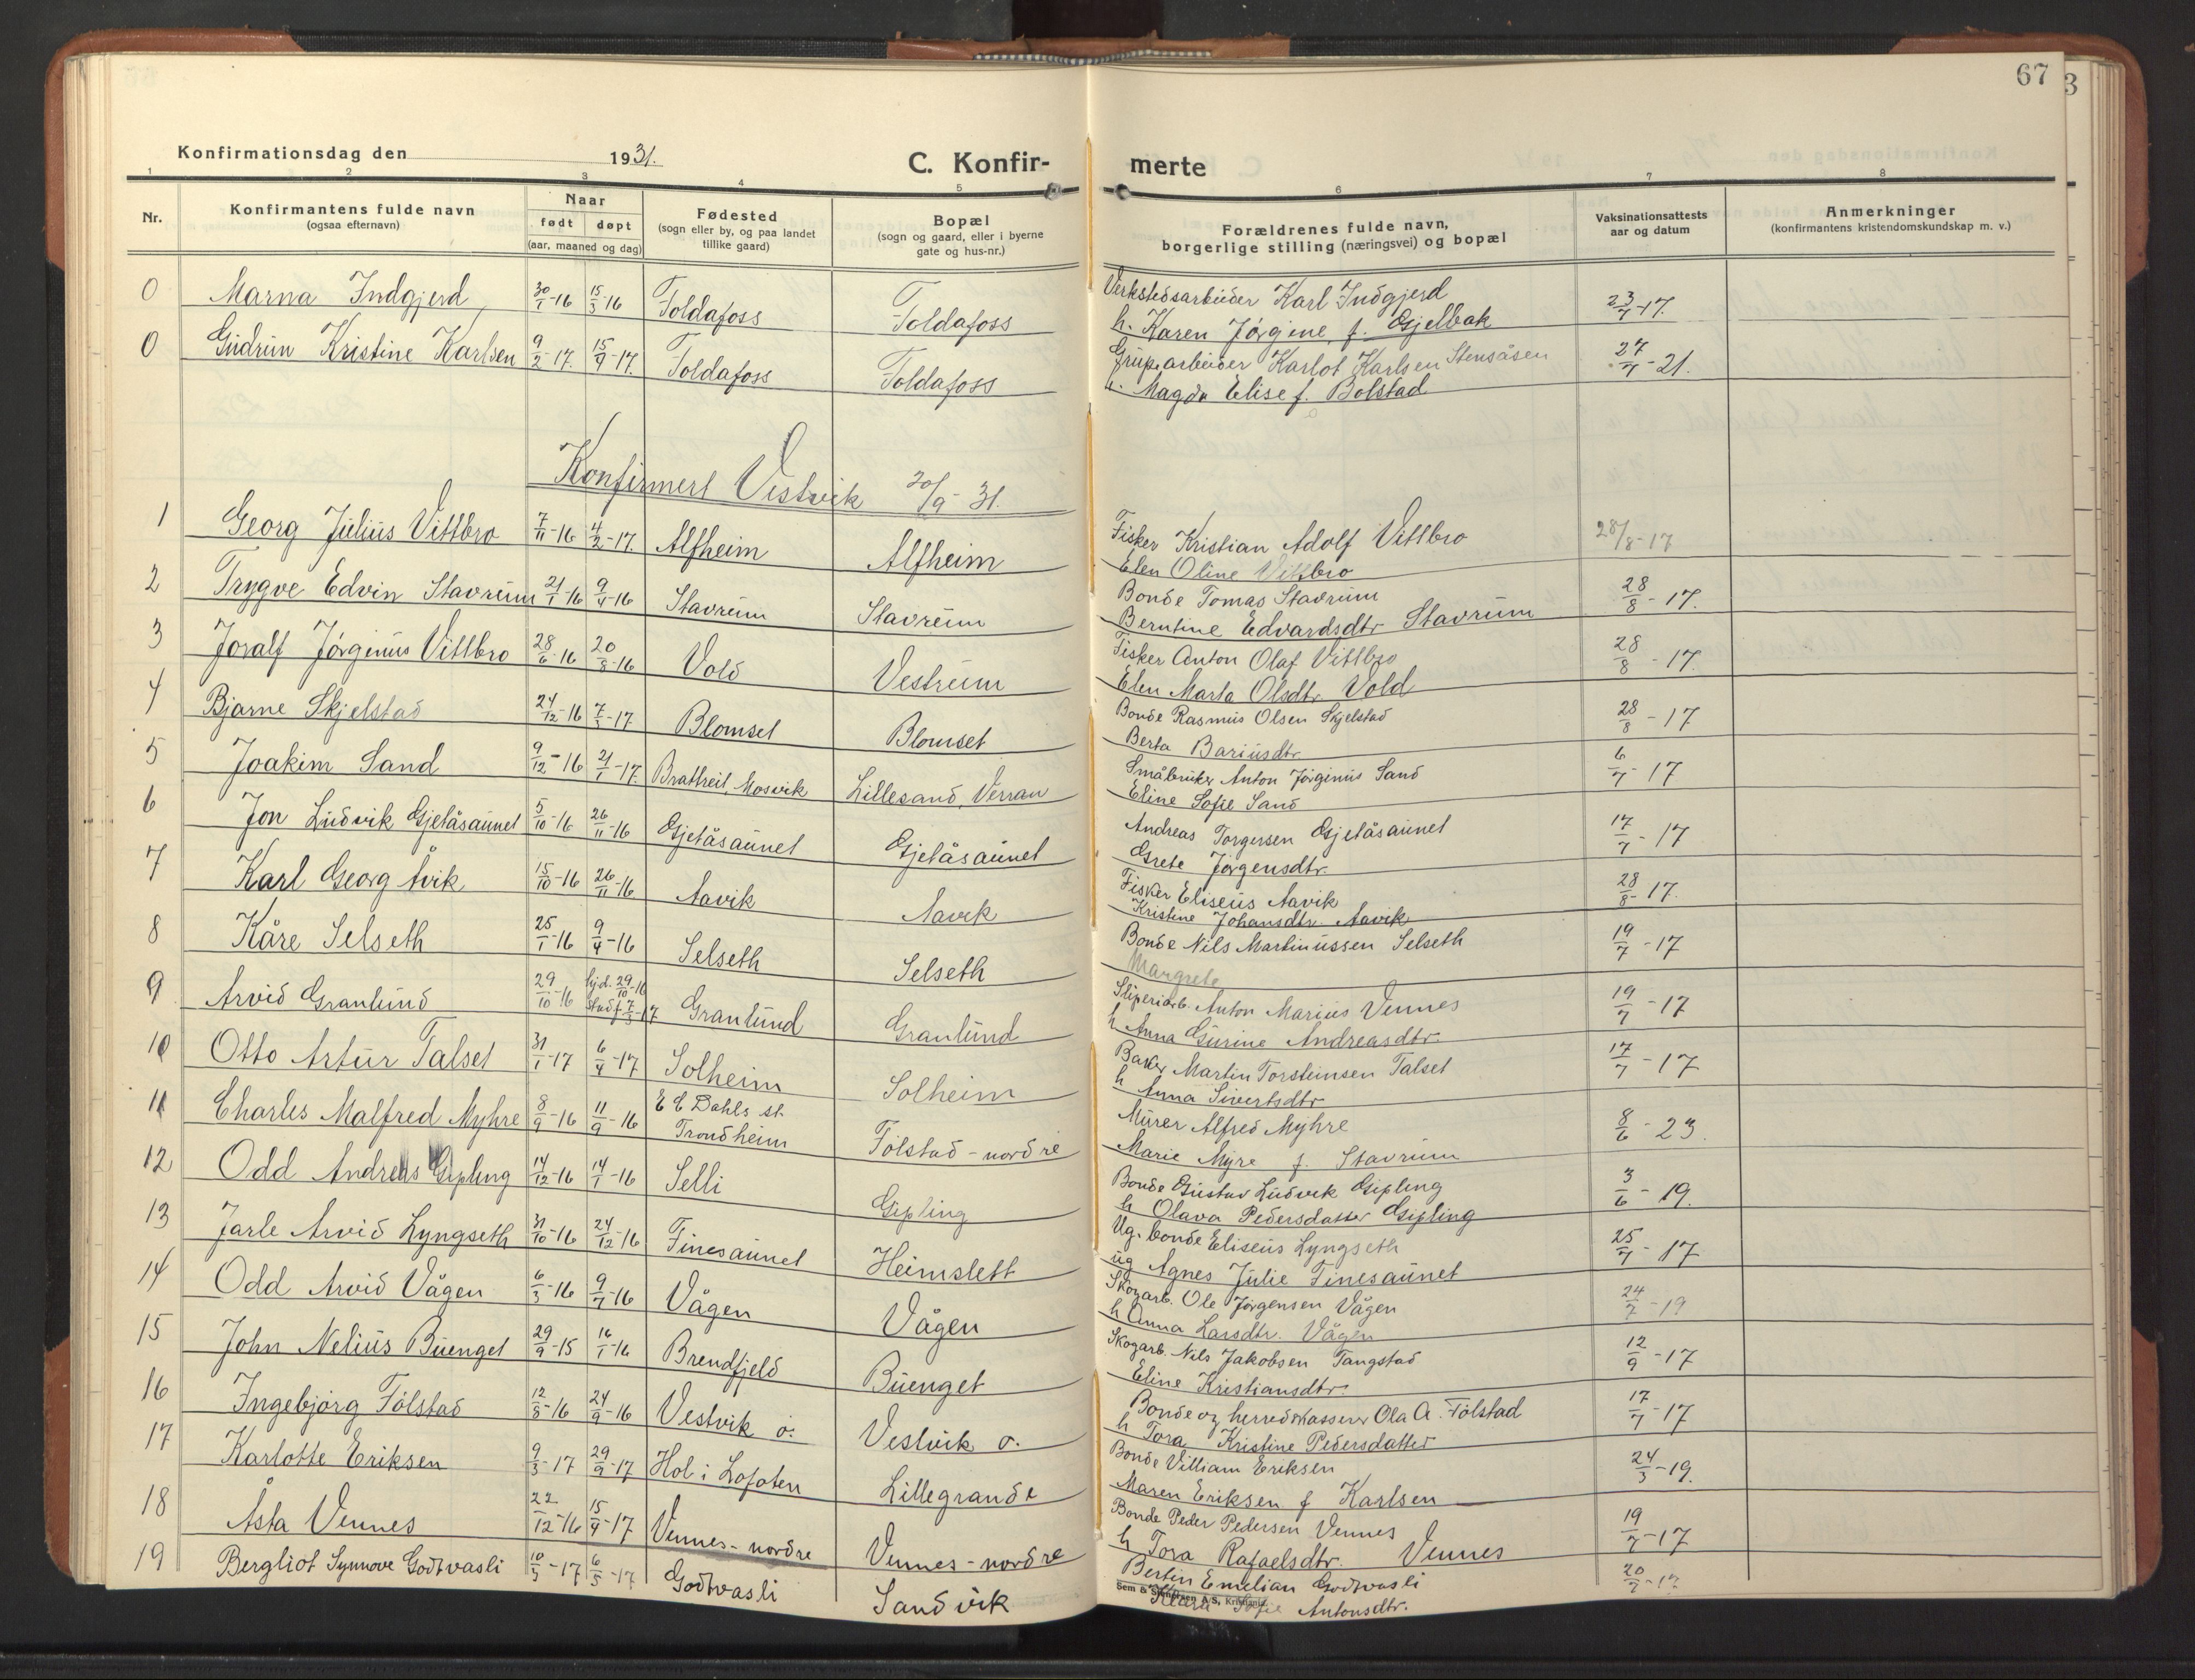 67
3
Konfirmationsdag den 1931.
C. Konfir-
merte
1 2 3 4 5 6 7 8
Nr.
Konfirmantens fulde navn
(ogsaa efternavn)
Naar
født døpt
(aar, maaned og dag)
Fødested
(sogn eller by, og paa landet
tillike gaard)
Bopæl
(sogn og gaard, eller i byerne
gate og hus-nr.)
Forældrenes fulde navn,
borgerlige stilling (næringsvei) og bopæl
Vaksinationsattests
aar og datum
Anmerkninger
(konfirmantens kristendomskundskap m. v.)
0 Marna Indgjerd 30/1-16 15/3-16 Foldafoss Foldafoss Verkstedsarbeider Karl Indgjerd 23/7-17.
h. Karen Jørgine f. Gjelbak
0 Gudrun Kristine Karlsen 9/2-17. 15/9-17. Foldafoss Foldafoss Grubearbeider Karlot Karlsen Stensåsen 27/7-21.
h. Magda Elise f. Bolstad
Konfirmert Vestvik 20/9-31.
1 Georg Julius Vittbro 7/11-16 4/2-17. Alfheim Alfheim Fisker Kristian Adolf Vittbro 28/8-17
Elen Oline Vittbro
2 Trygve Edvin Stavrum 21/1-16 9/4-16 Stavrum Stavrum Bonde Tomas Stavrum 28/8-17.
Berntine Edvardsdtr Stavrum
3 Joralf Jørginus Vittbro 28/6-16 20/8-16 Vold Vestrum Fisker Anton Olaf Vittbro 28/8-17.
Elen Marta Olsdtr. Vold
4 Bjarne Skjelstad 24/12-16 7/3-17. Blomset Blomset Bonde Rasmus Olsen Skjelstad 28/8-17
Berta Bariusdtr
5 Joakim Sand 9/12-16 21/1-17. Bratheit, Mosvik Lillesand, Verran Småbruker Anton Jørginus Sand 6/7-17
Eline Sofie Sand
6 Jon Ludvik Gjetåsaunet 5/10-16 26/11-16 Gjetåsaunet Gjetåsaunet Andreas Torgersen Gjetåsaunet 17/7-17
Grete Jørgensdtr.
7 Karl Georg Åvik 15/10-16 26/11-16 Aavik Aavik Fisker Eliseus Aavik 28/8-17.
Kristine Johansdtr. Aavik
8 Kåre Selseth 25/1-16 9/4-16 Selseth Selseth Bonde Nils Martinussen Selseth 19/7-17
Margrete
9 Arvid Granlund 29/10-16 hjd. 29/10-16 stadf 7/3-17 Granlund Granlund Sliperiarb. Anton Marius Vennes 19/7-17
h Anna Gurine Andreasdtr.
10 Otto Artur Talset 31/1-17 6/4-17 Solheim Solheim Baker Martin Torsteinsen Talset 17/7-17
h Anna Sivertsdtr
11 Charles Malfred Myhre 8/9-16 11/9-16 E C Dahls st. Trondheim Følstad-nordre Murer Alfred Myhre 8/6-23.
Marie Myre f. Stavrum
12 Odd Andreas Gipling 14/12-16 14/1-16 Selli Gipling Bonde Gustav Ludvik Gipling 3/6-19.
h Olava Pedersdatter Gipling
13 Jarle Arvid Lyngseth 31/10-16 24/12-16 Finesaunet Heimslett Ug. bonde Eliseus Lyngseth 25/7-17
ug Agnes Julie Finesaunet
14 Odd Arvid Vågen 6/3-16 9/7-16 Vågen Vågen Skogarb. Ole Jørgensen Vågen 24/7-19
h Anna Larsdtr. Vågen
15 John Nelius Buenget 29/9-15 16/1-16 Brendfjeld Buenget Skogarb. Nils Jakobsen Tangstad 12/9-17
Eline Kristiansdtr.
16 Ingebjørg Følstad 12/8-16 24/9-16 Vestvik ø. Vestvik ø. Bonde og herredskasserer Ola A. Følstad 17/7-17
h Tora Kristine Pedersdatter
17 Karlotte Eriksen 9/3-17 29/9-17 Hol i Lofoten Lillegrande Bonde Villiam Eriksen 24/3-19.
Maren Eriksen f Karlsen
18 Åsta Vennes 22/12-16 15/4-17 Vennes-nordre Vennes-nordre Bonde Peder Pedersen Vennes 19/7-17
h Tora Rafaelsdtr. Vennes
19 Bergliot Synnøve Godtvasli 10/3-17 6/5-17 Godtvasli Sandvik Bertin Emelian Godtvasli 20/7-17
Klara Sofie Antonsdtr.